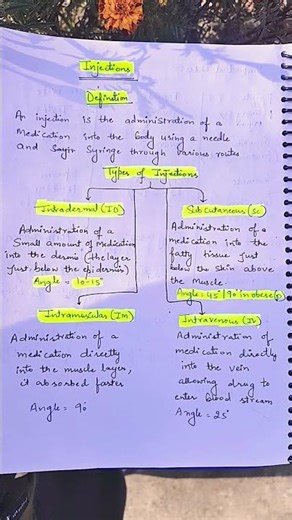 Injections
Definition
An injection is the administration of a
medication into the body using a needle
and Sayir Syringe through various routes
Types of Injections
Intradermal (ID)
Administration of a
Small amount of medication
into the dermis (the layer
just below the epidermis)
Angle = 10-15°
Subcutaneous (SC)
Administration of a
medication into the
fatty tissue just
below the skin above
the muscle.
Angle = 45°/90° in obese(p)
Intramuscular (IM)
Administration of a
medication directly
into the muscle layer,
it absorbed faster
Angle = 90°
Intravenous (IV)
Administration of
medication directly
into the vein
allowing drug to
enter blood stream
Angle = 25°